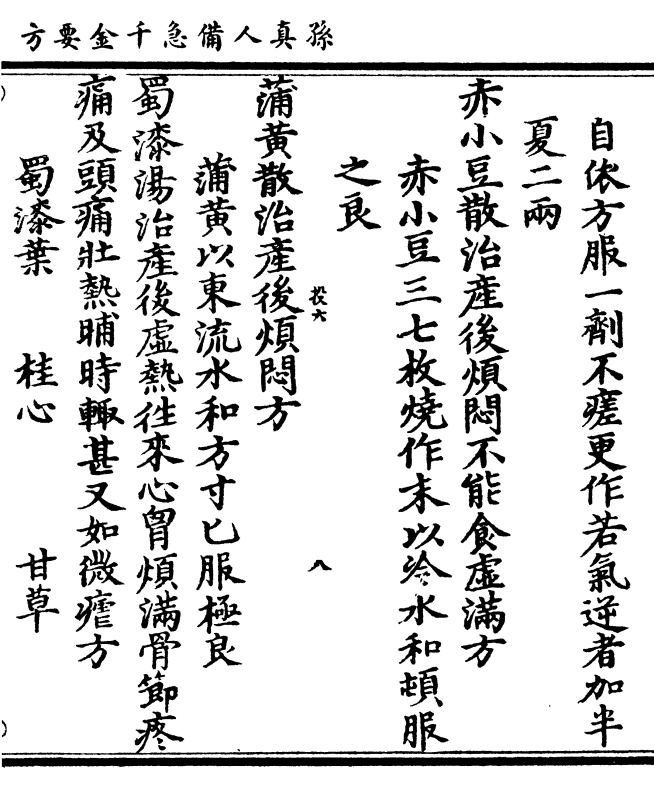 孫真人備急千金要方
自依方服一劑不瘥更作若氣逆者加半
夏二兩
赤小豆散治產後煩悶不能食虛滿方
赤小豆三七枚燒作末以冷水和頓服
之良
投六
八
蒲黃散治產後煩悶方
蒲黃以東流水和方寸匕服極良
蜀漆湯治產後虛熱往來心胷煩滿骨節疼
痛及頭痛壯熱晡時輙甚又如微瘧方
蜀漆葉 桂心 甘草